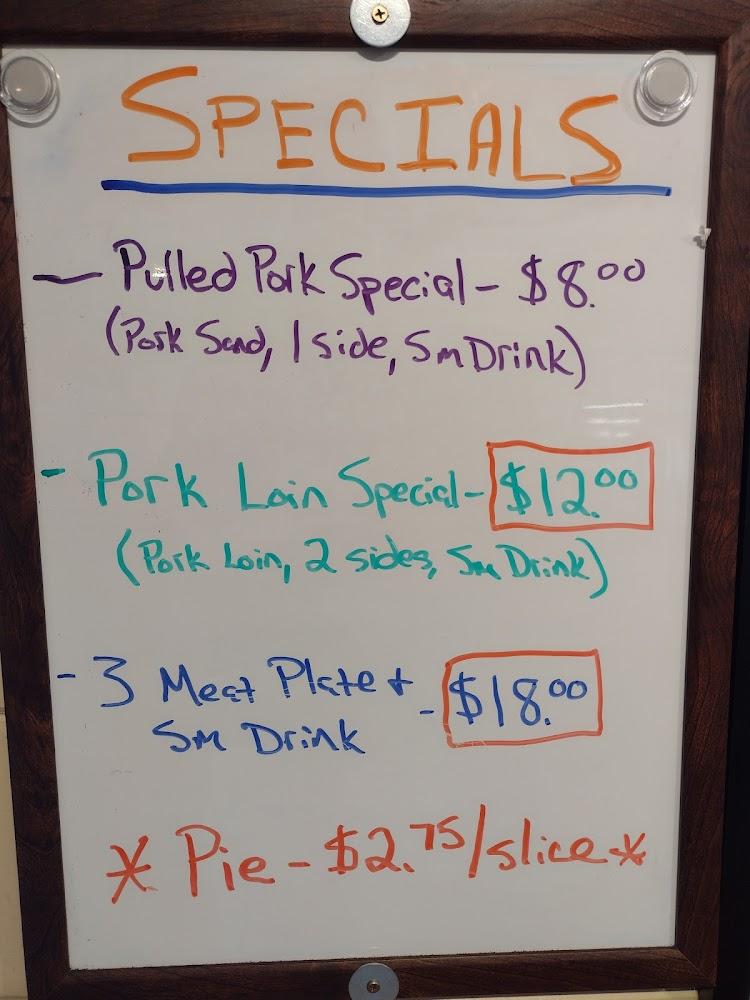 SPECIALS
- Pulled Pork Special - $8.00
(Pork Sand, 1 side, Sm Drink)
- Pork Loin Special - $12.00
(Pork Loin, 2 sides, Sm Drink)
- 3 Meat Plate +
Sm Drink - $18.00
* Pie - $2.75/slice *